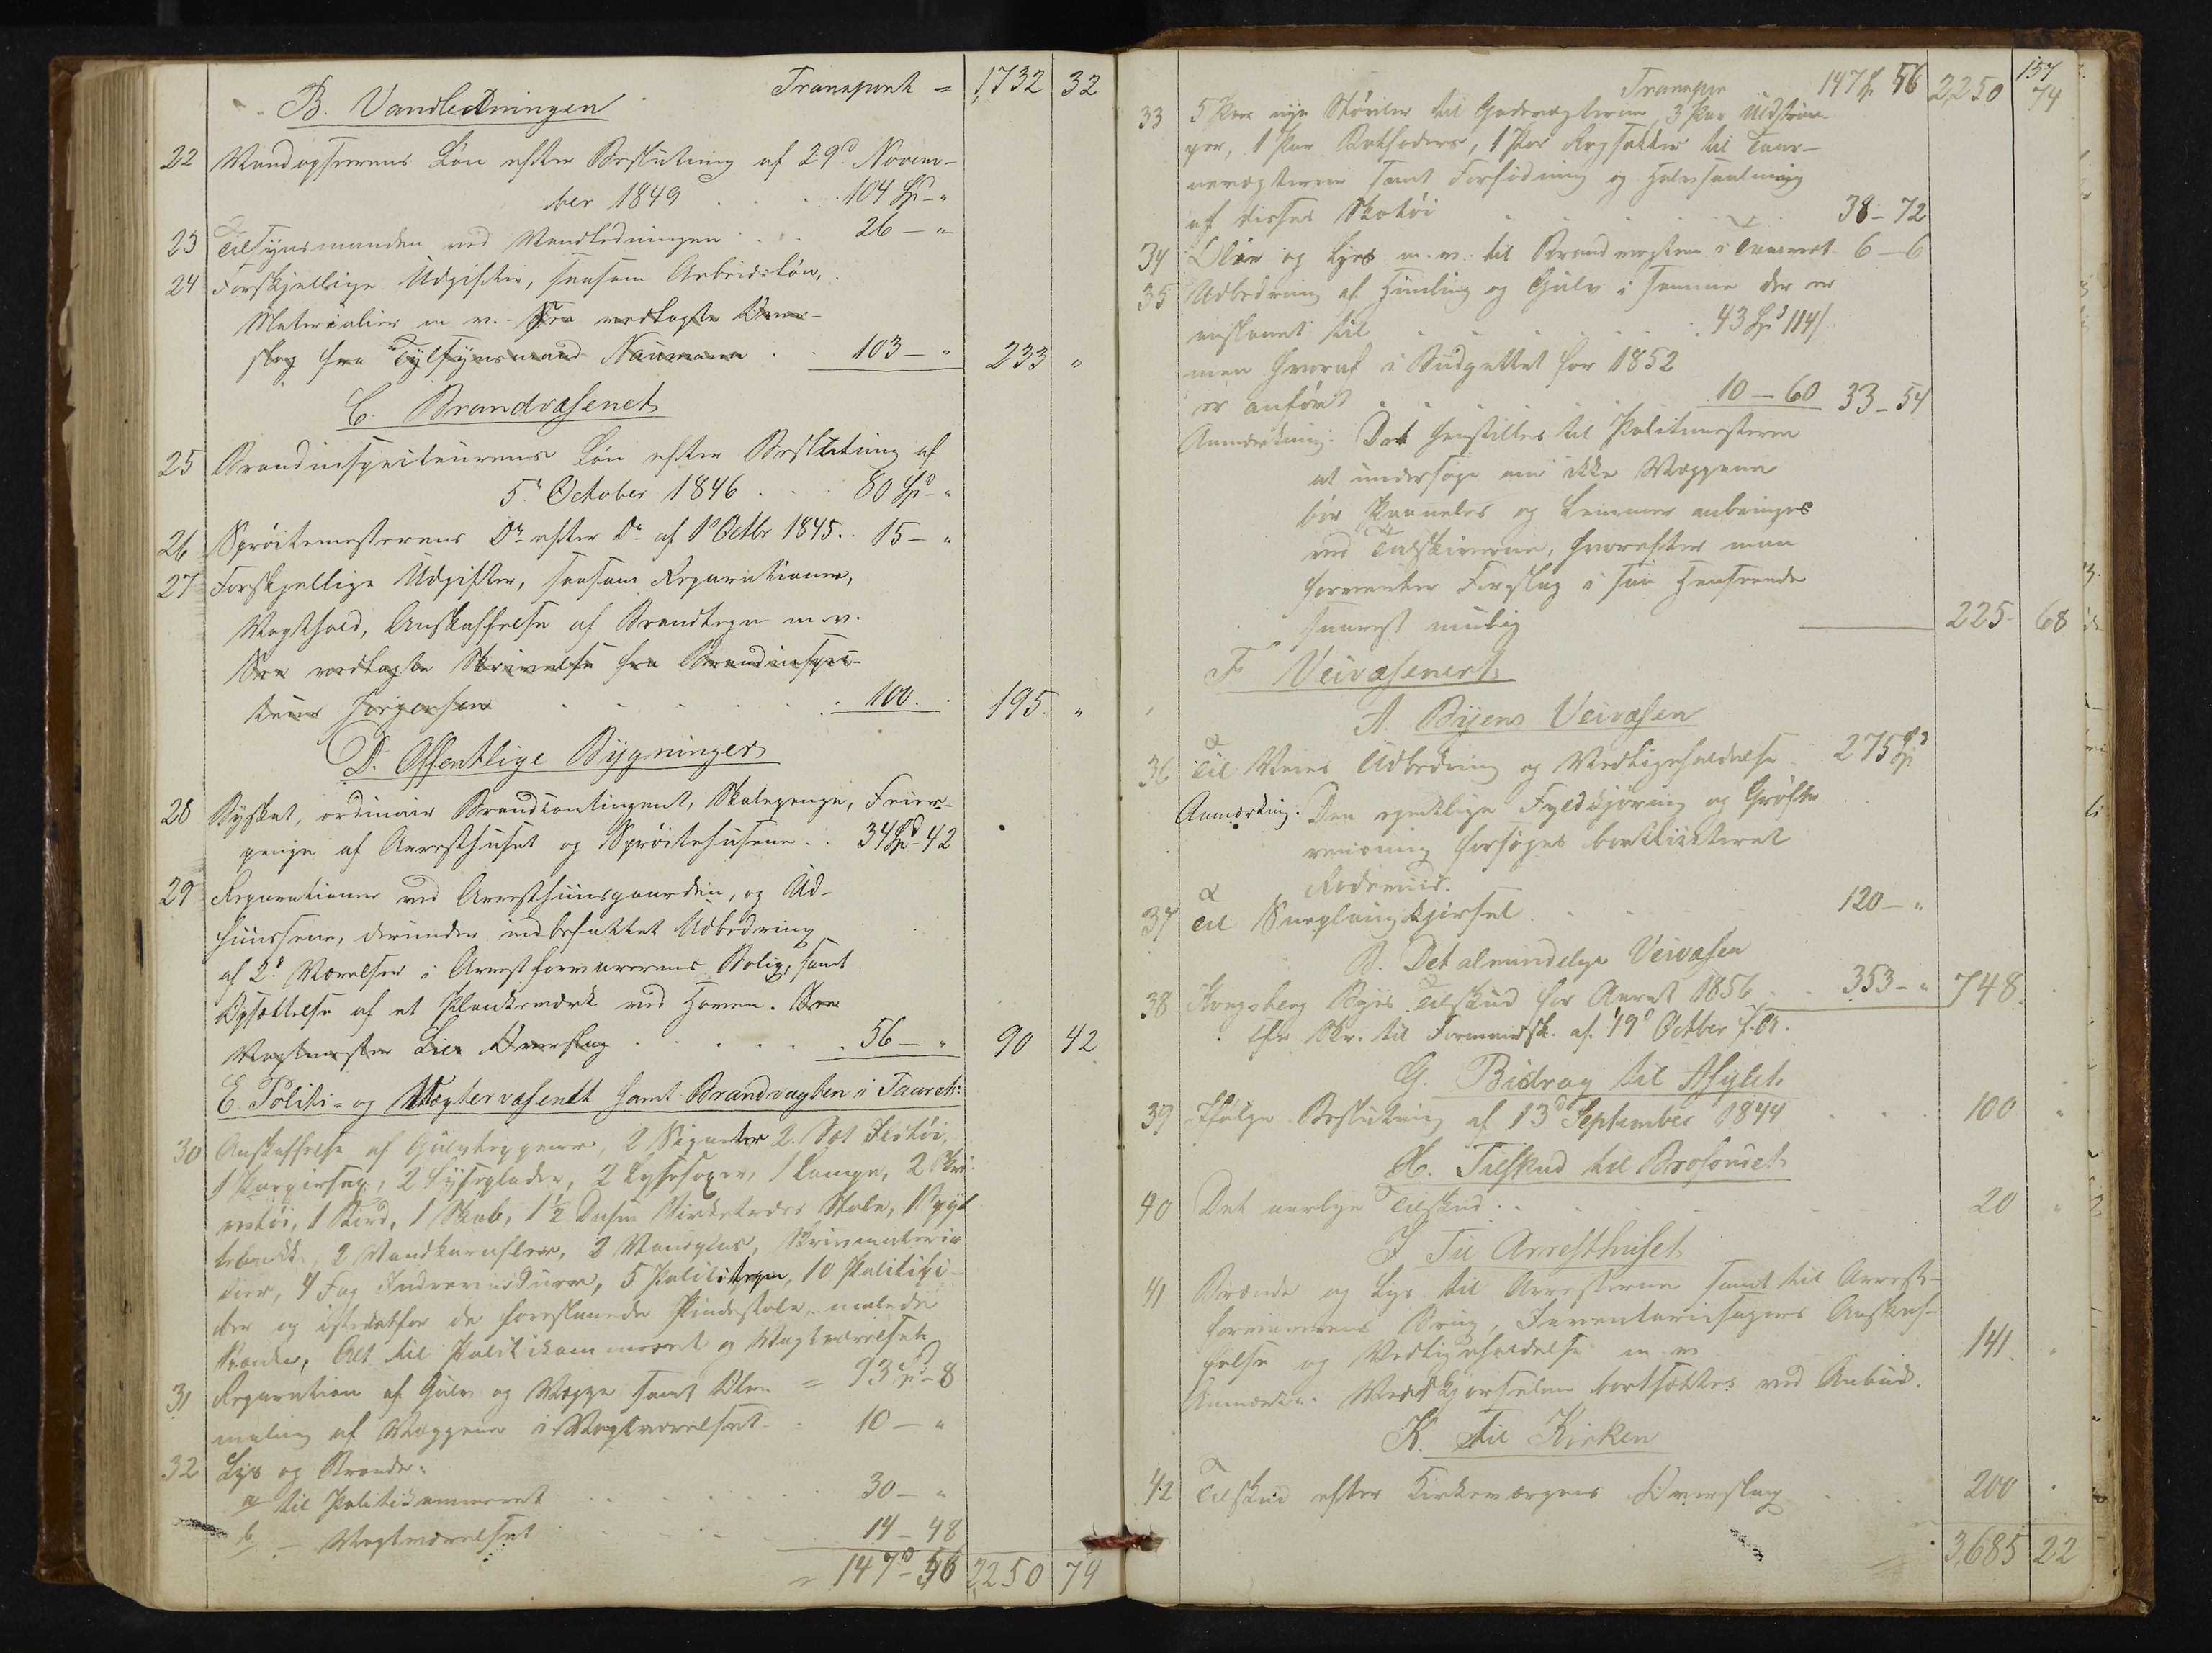 Transport = 1732 32
B. Vandledningen
22 Vandopsynens Løn efter Beslutning af 29d Novem-
ber 1849 . . . 104 Spd - "
23 Tilsynsmanden ved Vandledningen . . 26 - "
24 Forskjellige Udgifter, saasom Arbeidsløn,
Materialier m v. - See vedlagte Over-
slag fra Tylsynsmand Naumann . . 103 - " 233 "
C. Brandvæsenet
25 Brandinspecteurens Løn efter Beslutning af
5t October 1846 . . . 80 Spd - "
26 Sprøitemesterens Do efter Do af 1d Octbr 1845 . . 15 - "
27 Forskjellige Udgifter, saasom Reparationer,
Vagthold, Anskaffelse af Brandtegn m.v.
See vedlagte Skrivelse fra Brandinspec-
teur Jørgensen . . . 100. . 195. "
D. Offentlige Bygninger
28 Byskat, ordinair Brandcontingent, Skolepenge, Feier-
penge af Arresthuset og Sprøitehusene . . 34 Spd - 42
29 Reparationer ved Arresthuusgaarden, og Ud-
huussene, derunder indbefattet Udbedring
af 2de Værelser i Arrestforvarerens Bolig, samt
Opsættelse af et Plankeværk ved Haven. See
Vagtmester Lies Overslag . . . 56 - " 90 42
E. Politi- og Vægtervæsenet samt Brandvagten i Taarnet:
30 Anskaffelse af Gulvteppener, 2 Signeter 2 Sæt Ildtøi,
1 Papiersax, 2 Lyseplader, 2 Lysesaxer, 1 Lampe, 2 Skri-
vetøi, 1 Bord, 1 Skab, 1 1/2 Dusin Birketræes Stole, 1 Spyt-
tebakke, 2 Vandkarafler, 2 Vandglas, Skrivemateria-
lier, 4 Fag Indrevinduer, 5 Polititegn, 10 Politipi-
ber og istedetfor de foreslaaede Pindestole malede
Bænke, Alt til Politikammeret og Vagtværelset = 93 Spd - 8
31 Reparation af Gulv og Vægge samt Olie-
maling af Væggene i Vagtværelset . 10 - "
32 Lys og Brænde:
a/ til Politikammeret . . . 30 - "
b/ - Vagtværelset . . . 14 - 48
= 147 - 56 2250 74
157
Transpor 147 Sp 56 2250 74
33 5 Par nye Støvler til Gadevægterne, 3 Par Uldstrøm-
per, 1 Par Botforer, 1 Par Ragsokker til Taarn-
vægterne samt Forfødning og Halvsaaling
af disses Skotøi . . . 38 - 72
34 Olie og Lys m.v. til Brandvagten i Taarnet . 6 - 6
35 Udbedring af Himling og Gulv i samme der er
anslaaet til . . . 43 Spd 114 s
men hvoraf i Budgettet for 1852
er anført . . . 10 - 60 33 - 54
Anmærkning. Det henstilles til Politimesteren
at undersøge om ikke Væggene
bør Paaneles og Lemmer anbringes
ved Talskiverne, hvorefter man
forventer Forslag i saa Henseende
snarest mulig 225 68
F Veivæsenet
A. Byens Veivæsen
36 Til Veies Udbedring og Vedligeholdelse . 275 Spd
Anmærkning. Den egentlige Fyldkjøring og Grøfte
rensning forsøges bortliciteret
Rodeviis.
37 Til Sneplougkjørsel . . . 120 - "
B. Det almindelige Veivæsen
38 Kongsberg Byes Tilskud for Aaret 1856 . . 353 - " 748.
Efr Skr. til Formandsk. af 19d Octber f. A.
G. Bidrag til Asylet.
39 Ifølge Beslutning af 13d September 1844 . . . 100 "
H. Tilskud til Brofondet.
40 Det aarlige Tilskud . . . 20 "
I Til Arresthuset
41 Brænde og Lys til Arresterne samt til Arrest-
forvarerens Brug, Inventariesagers Anskaf-
felse og Vedligeholdelse m v 141 "
Anmærkn. Vedkjørselen bortsættes ved Anbud.
K. Til Kirken
42 Tilskud efter Kirkeværgens Overslag . . . 200
3685 22